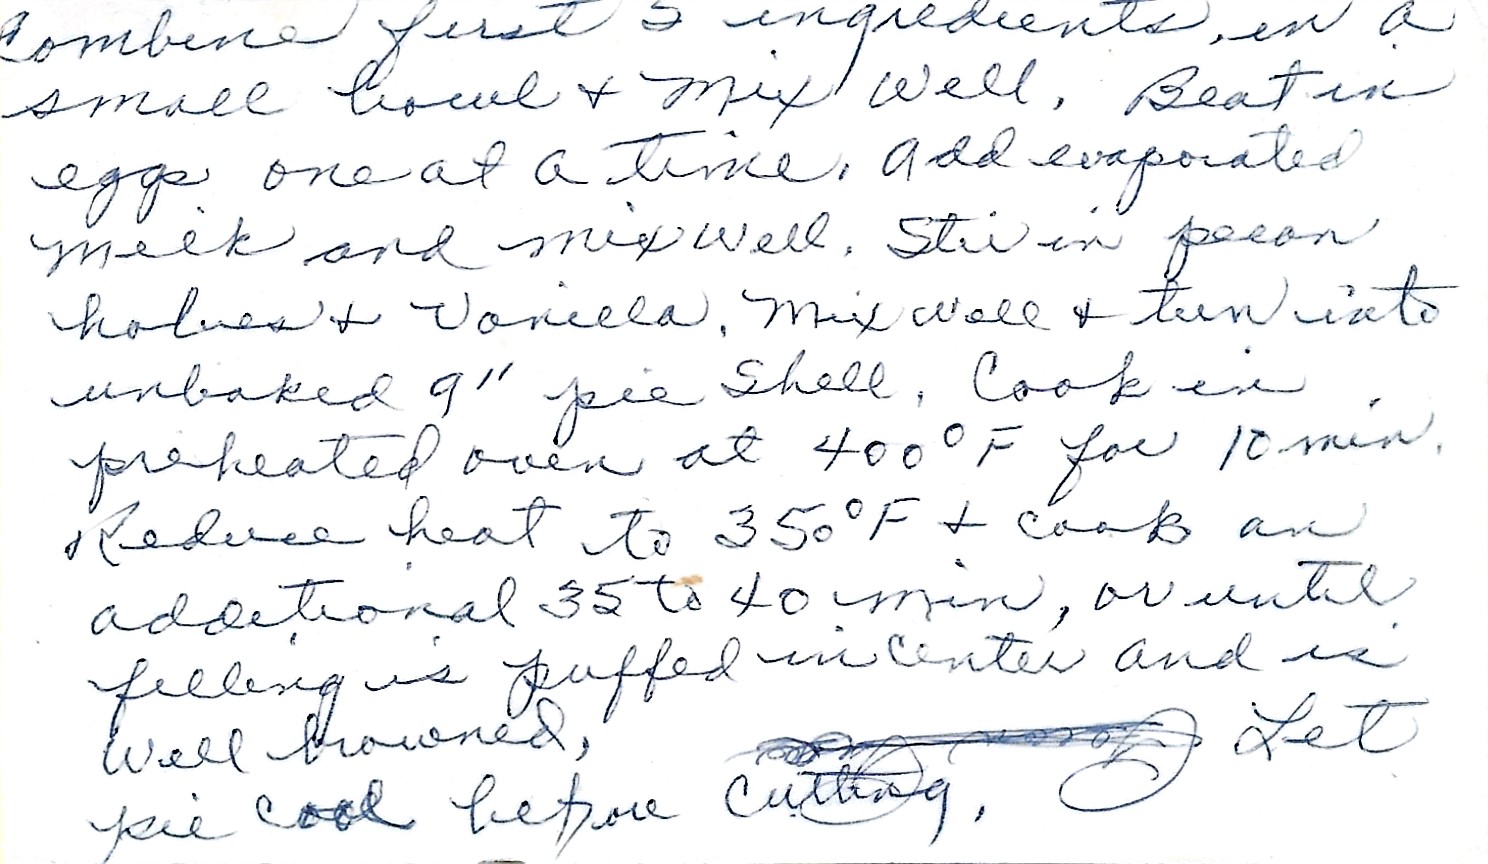 Combine first 5 ingredients, in a
small bowl & Mix Well. Beat in
eggs one at a time. Add evaporated
milk and mix well. Stir in pecan
halves & Vanilla. Mix well & turn into
unbaked 9" pie Shell. Cook in
preheated oven at 400°F for 10 min.
Reduce heat to 350°F & cook an
additional 35 to 40 min, or until
filling is puffed in center and is
Well browned, Let
pie cool before cutting.